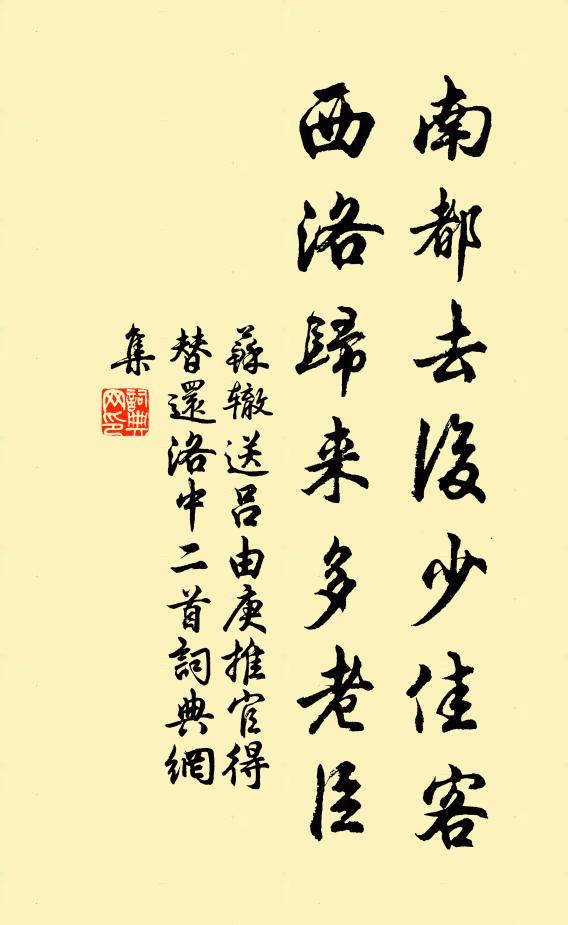 南都去後少佳客
西洛歸来多老臣
蘇辙送呂由庚推官得
替還洛中二首詞典網
集
詞典网印